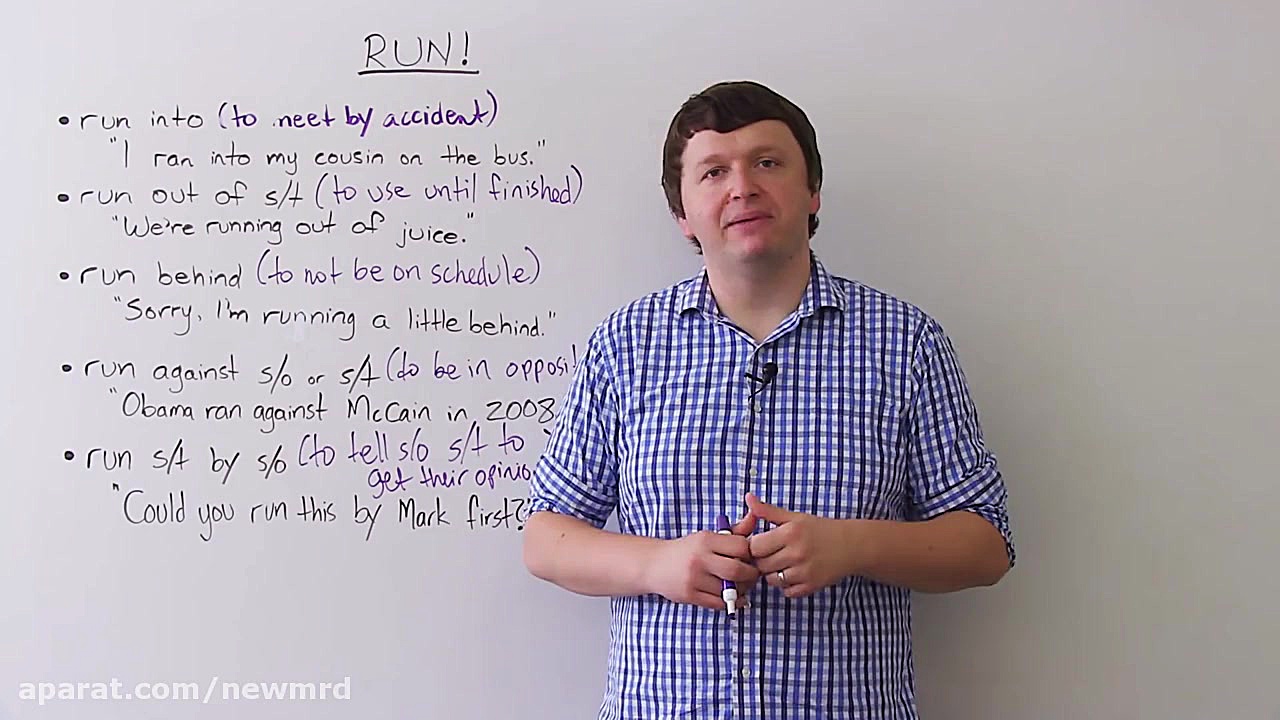 RUN!
• run into (to meet by accident)
"I ran into my cousin on the bus."
• run out of s/t (to use until finished)
"We're running out of juice."
• run behind (to not be on schedule)
"Sorry, I'm running a little behind."
• run against s/o or s/t (to be in opposi
"Obama ran against McCain in 2008.
• run s/t by s/o (to tell s/o s/t to
get their opinio
"Could you run this by Mark first?"
aparat.com/newmrd